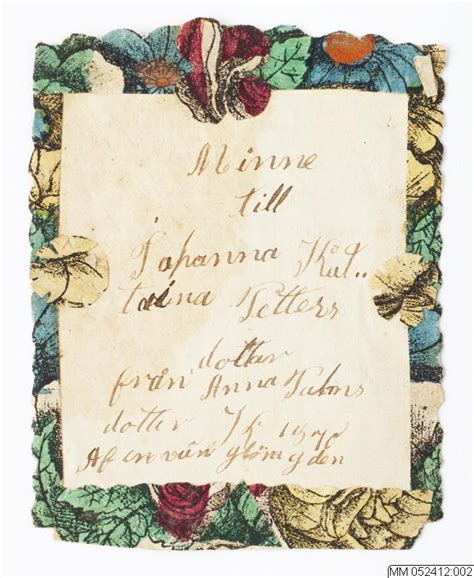 Minne
till
Johanna Kat..
taina Petters
dottar
från Anna Palms
dotter
Af en vän glöm y den
MM 052412:002